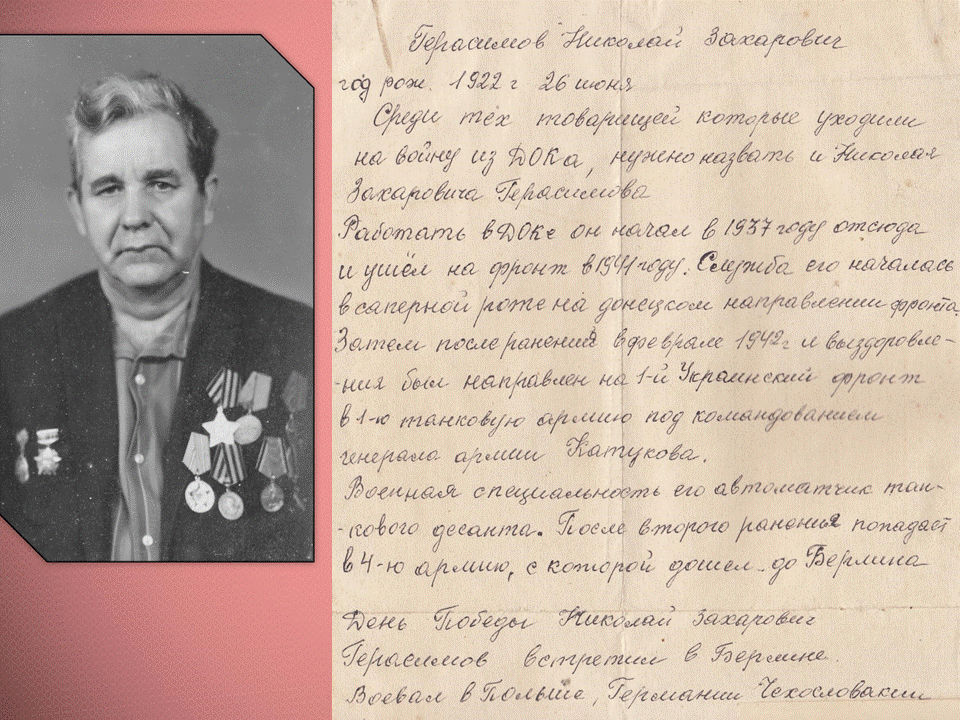 Герасимов Николай Захарович
год рож. 1922 г 26 июня
Среди тех товарищей которые уходили
на войну из ДОКа, нужно назвать и Николая
Захаровича Герасимова
Работать в ДОКе он начал в 1937 году отсюда
и ушёл на фронт в 1941 году. Служба его началась
в саперной роте на донецком направлении фронта.
Затем после ранения в феврале 1942 г и выздоровле-
-ния был направлен на 1-й Украинский фронт
в 1-ю танковую армию под командованием
генерала армии Катукова.
Военная специальность его автоматчик тан-
-кового десанта. После второго ранения попадает
в 4-ю армию, с которой дошел до Берлина
День Победы Николай Захарович
Герасимов встретил в Берлине.
Воевал в Польше, Германии Чехословакии